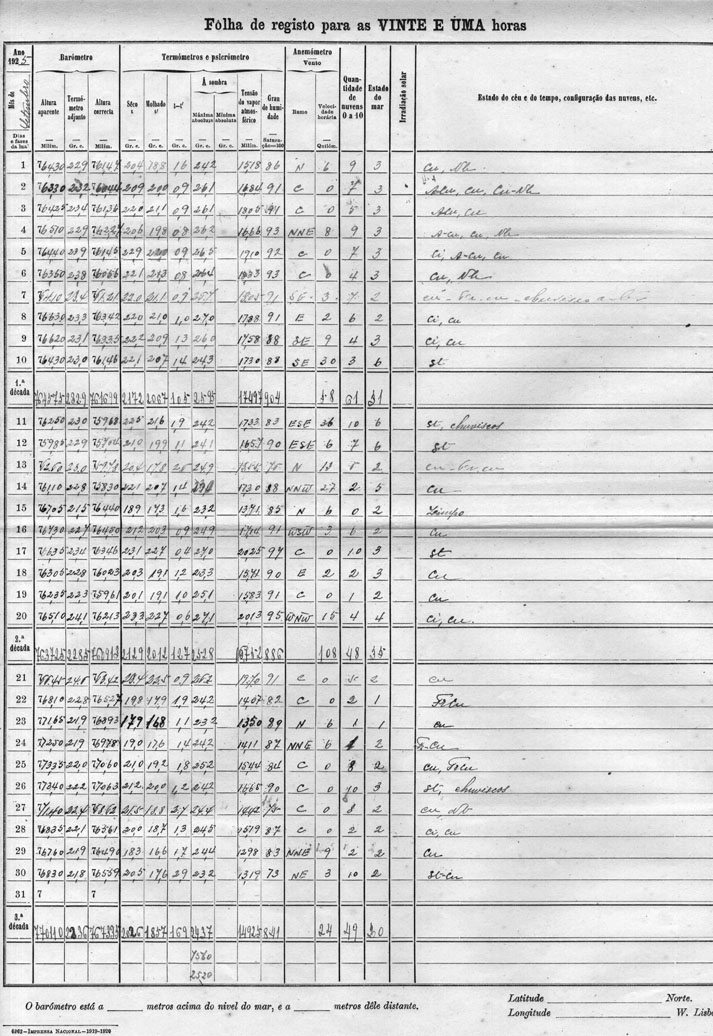 Folha de registo para as VINTE E UMA horas
Ano 1925 Barómetro Termómetros e psicrómetro Anemómetro Quantidade de nuvens 0 a 10 Estado do mar Irradiação solar Estado do céu e do tempo, configuração das nuvens, etc.
Mês de Setembro
À sombra Vento
Altura aparente Termómetro adjunto Altura correcta Sêco t Molhado t' t—t' Máxima absoluta Mínima absoluta Tensão do vapor atmosférico Grau de humidade Rumo Velocidade horária
Dias e fases da lua Milím. Gr. c. Milím. Gr. c. Gr. c. Gr. c. Gr. c. Gr. c. Milím. Saturação=100 Quilóm.
1 76430 229 76147 204 188 16 242 1518 86 N 6 9 3 Cu, Nb
2 209 200 09 261 1684 91 C 0 7 3 A-cu, cu, Cu-Nb
3 76425 234 76136 220 211 09 261 1805 91 C 0 5 3 A-cu, cu
4 76510 229 76227 206 198 08 262 1666 93 NNE 8 9 3 A-cu, cu, Nb
5 76440 239 76145 229 220 09 265 1910 92 C 0 7 3 Ci, A-cu, cu
6 76350 238 76056 221 213 08 264 1833 93 C 0 4 3 Cu, Nb
7 220 211 09 91 SE 3 7 2
8 76630 233 76342 220 210 1,0 270 1788 91 E 2 6 2 Ci, cu
9 76620 231 76335 222 209 13 260 1758 88 SE 9 4 3 Ci, cu
10 76430 230 76146 221 207 14 243 1730 88 SE 30 3 6 st
1.ª década 2329 2172 2067 105 2595 17497 904 58 61 31
11 76250 230 75968 225 216 19 242 1733 83 ESE 36 10 6 st, chuviscos
12 75985 229 75704 210 199 11 241 1657 90 ESE 6 7 6 st
13 230 204 178 26 249 75 N 5 2
14 76110 228 75830 221 207 1,4 1730 88 NNW 27 2 5 cu
15 76705 215 76440 189 173 1,6 232 1371 85 N 6 0 2 Limpo
16 76730 227 76450 212 203 09 249 1714 91 WSW 3 6 2 Cu
17 76635 234 76346 231 227 04 270 2025 97 C 0 10 3 st
18 76305 228 76023 203 191 12 233 1571 90 E 2 2 3 Cu
19 76235 223 75961 201 191 10 251 1583 91 C 0 1 2 Cu
20 76510 241 76213 233 227 06 271 2013 95 WNW 15 4 4 Ci, cu
2.ª década 763725 2285 2129 2012 127 886 108 48 35
21 09 91 C 0 2 cu
22 76810 228 76527 198 179 19 242 1407 82 C 0 2 1 Frcu
23 77165 219 76893 179 168 1,1 232 1350 89 N 6 1 1 cu
24 77250 219 76978 190 176 14 242 1411 87 NNE 6 2 Fr-cu
25 77335 220 77060 210 192 1,8 252 1544 84 C 0 8 2 cu, Frcu
26 77340 222 77063 212 200 1,2 242 1665 90 C 0 10 3 st, chuviscos
27 224 188 27 C 0 8 2 cu, Nb
28 76835 221 76561 200 187 13 245 1519 87 C 0 2 2 Ci, cu
29 76760 219 76490 183 166 17 244 1298 83 NNE 9 2 2 Cu
30 76830 218 76559 205 176 29 232 1319 73 NE 3 10 2 st-cu
31 7 7
3.ª década 770110 2236 2026 1857 169 2437 14925 841 24 49 20
7560
2520
O barómetro está a ______ metros acima do nível do mar, e a ______ metros dêle distante.
Latitude ______ Norte.
Longitude ______ W. Lisb
6262—Imprensa Nacional—1919-1920